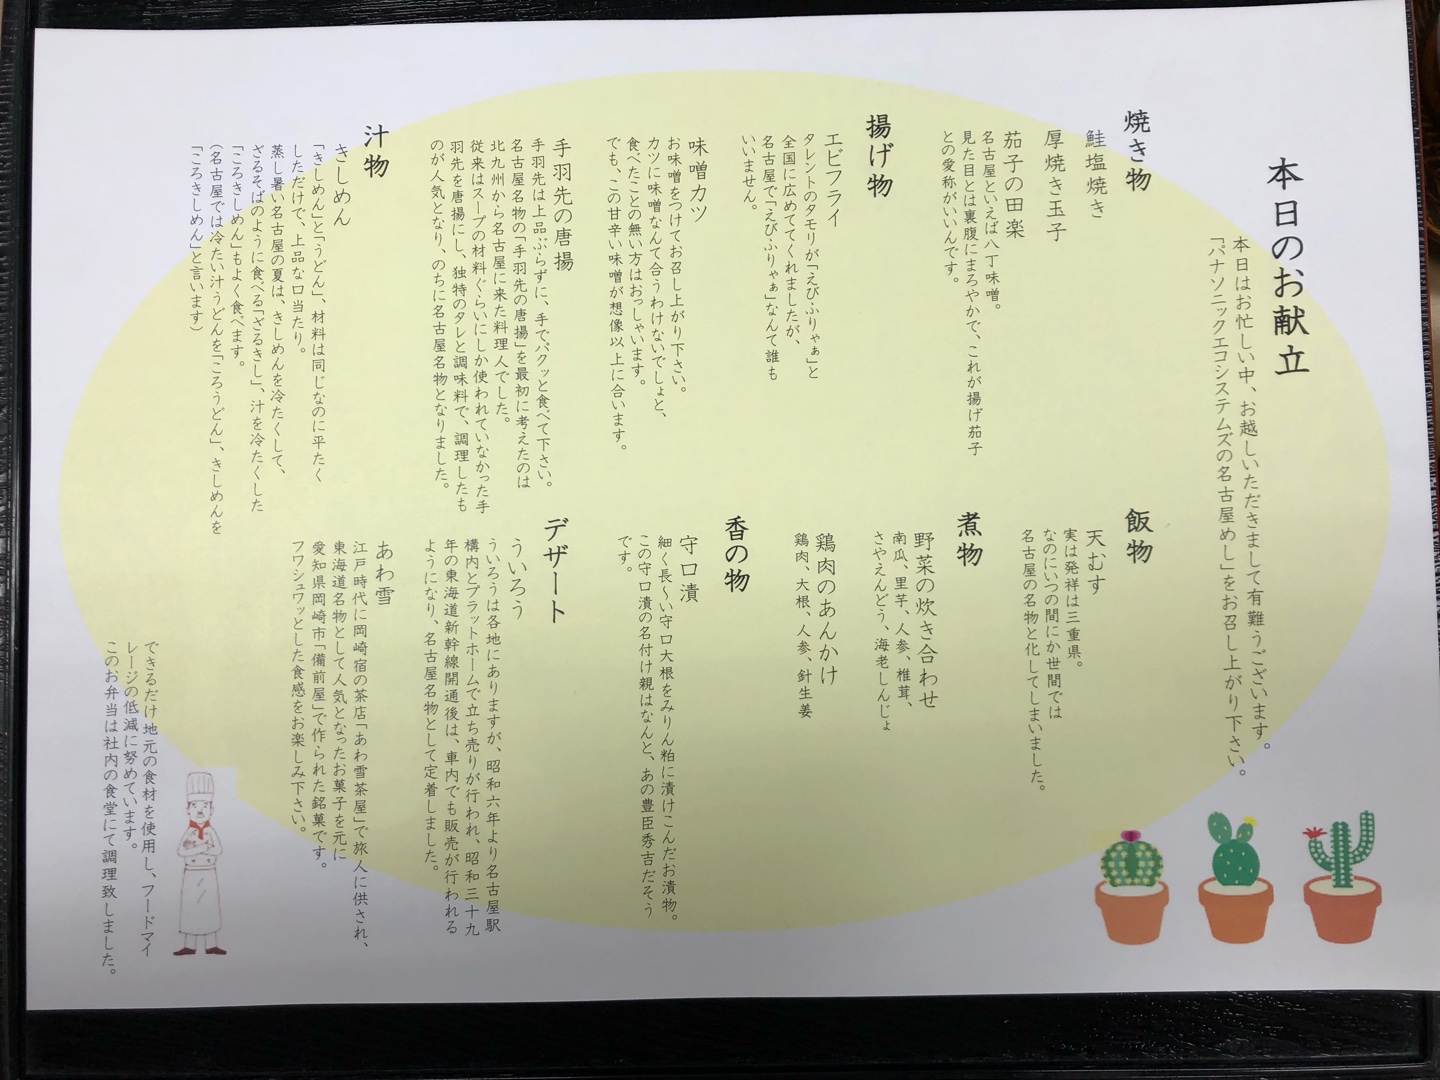 本日のお献立
本日はお忙しい中、お越しいただきまして有難うございます。
「パナソニックエコシステムズの名古屋めし」をお召し上がり下さい。
焼き物
鮭塩焼き
厚焼き玉子
茄子の田楽
名古屋といえば八丁味噌。
見た目とは裏腹にまろやかで、これが揚げ茄子
との愛称がいいんです。
揚げ物
エビフライ
タレントのタモリが「えびふりゃぁ」と
全国に広めててくれましたが、
名古屋で「えびふりゃぁ」なんて誰も
いいません。
味噌カツ
お味噌をつけてお召し上がり下さい。
カツに味噌なんて合うわけないでしょと、
食べたことの無い方はおっしゃいます。
でも、この甘辛い味噌が想像以上に合います。
手羽先の唐揚
手羽先は上品ぶらずに、手でパクッと食べて下さい。
名古屋名物の「手羽先の唐揚」を最初に考えたのは
北九州から名古屋に来た料理人でした。
従来はスープの材料ぐらいにしか使われていなかった手
羽先を唐揚にし、独特のタレと調味料で、調理したも
のが人気となり、のちに名古屋名物となりました。
汁物
きしめん
「きしめん」と「うどん」、材料は同じなのに平たく
しただけで、上品な口当たり。
蒸し暑い名古屋の夏は、きしめんを冷たくして、
ざるそばのように食べる「ざるきし」、汁を冷たくした
「ころきしめん」もよく食べます。
(名古屋では冷たい汁うどんを「ころうどん」、きしめんを
「ころきしめん」と言います)
飯物
天むす
実は発祥は三重県。
なのにいつの間にか世間では
名古屋の名物と化してしまいました。
煮物
野菜の炊き合わせ
南瓜、里芋、人参、椎茸、
さやえんどう、海老しんじょ
鶏肉のあんかけ
鶏肉、大根、人参、針生姜
香の物
守口漬
細く長〜い守口大根をみりん粕に漬けこんだお漬物。
この守口漬の名付け親はなんと、あの豊臣秀吉だそう
です。
デザート
ういろう
ういろうは各地にありますが、昭和六年より名古屋駅
構内とプラットホームで立ち売りが行われ、昭和三十九
年の東海道新幹線開通後は、車内でも販売が行われる
ようになり、名古屋名物として定着しました。
あわ雪
江戸時代に岡崎宿の茶店「あわ雪茶屋」で旅人に供され、
東海道名物として人気となったお菓子を元に
愛知県岡崎市「備前屋」で作られた銘菓です。
フワシュワッとした食感をお楽しみ下さい。
できるだけ地元の食材を使用し、フードマイ
レージの低減に努めています。
このお弁当は社内の食堂にて調理致しました。